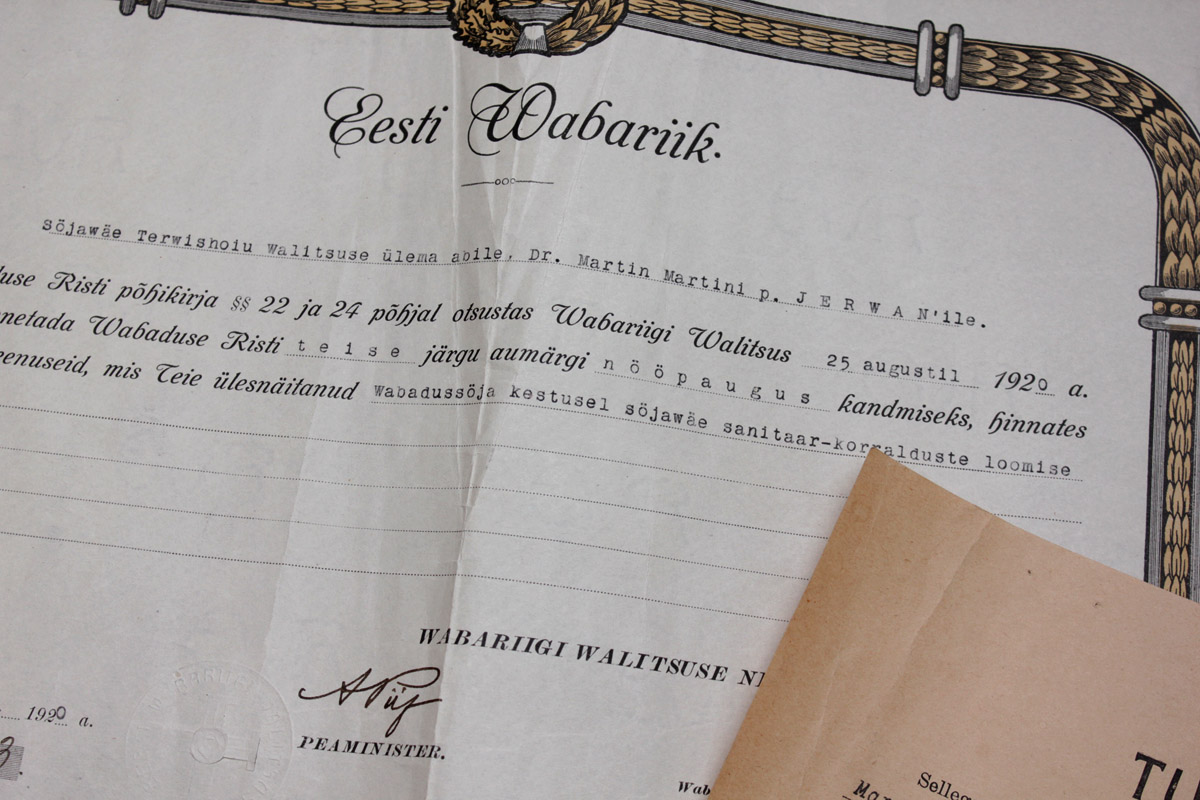 Eesti Wabariik.
Sõjawäe Terwishoiu Walitsuse ülema abile, Dr. Martin Martini p. J E R W A N'ile.
Risti põhikirja §§ 22 ja 24 põhjal otsustas Wabariigi Walitsus 25 augustil 1920 a.
Wabaduse Risti t e i s e järgu aumärgi n ö ö p a u g u s kandmiseks, hinnates
mis Teie ülesnäitanud Wabadussõja kestusel sõjawäe sanitaar-korralduste loomise
WABARIIGI WALITSUSE
A Piip
PEAMINISTER.
1920 a.